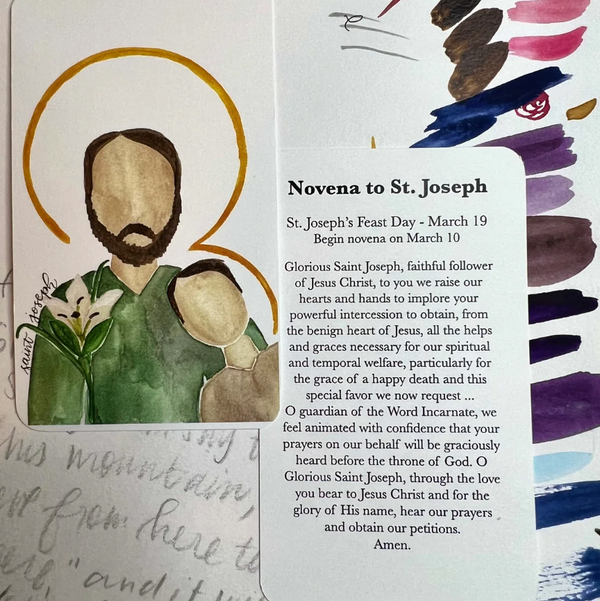 saint joseph
Novena to St. Joseph
St. Joseph's Feast Day - March 19
Begin novena on March 10
Glorious Saint Joseph, faithful follower
of Jesus Christ, to you we raise our
hearts and hands to implore your
powerful intercession to obtain, from
the benign heart of Jesus, all the helps
and graces necessary for our spiritual
and temporal welfare, particularly for
the grace of a happy death and this
special favor we now request ...
O guardian of the Word Incarnate, we
feel animated with confidence that your
prayers on our behalf will be graciously
heard before the throne of God. O
Glorious Saint Joseph, through the love
you bear to Jesus Christ and for the
glory of His name, hear our prayers
and obtain our petitions.
Amen.
this mountain,
from here to
and it